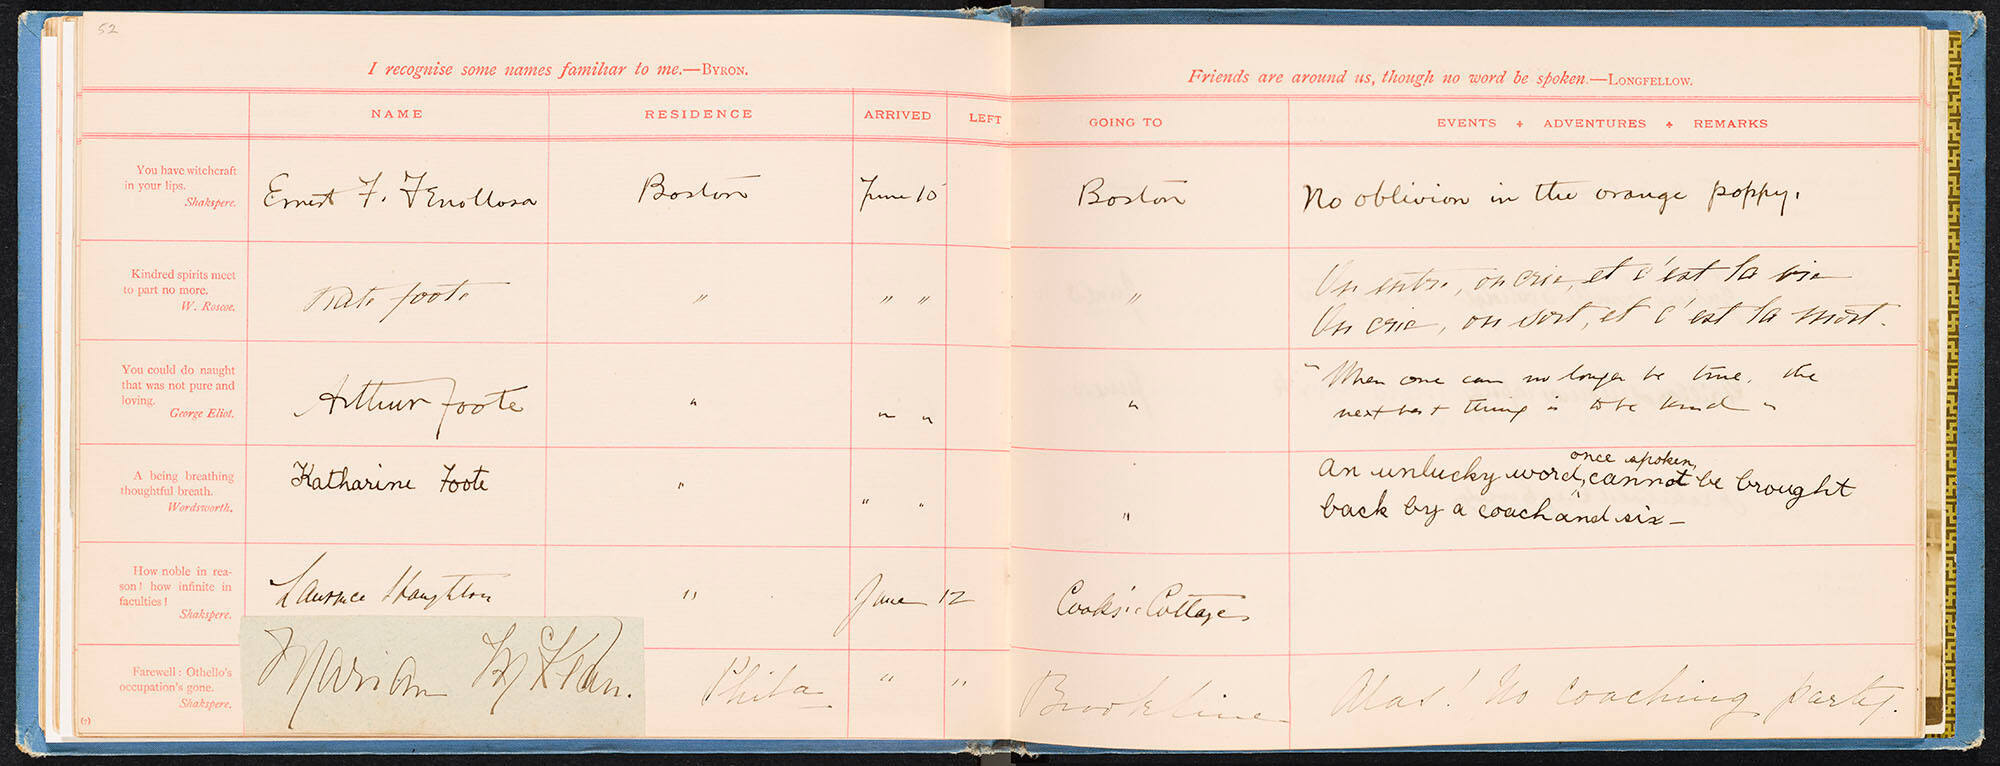 52
I recognise some names familiar to me.—BYRON.
Friends are around us, though no word be spoken.—LONGFELLOW.
NAME RESIDENCE ARRIVED LEFT GOING TO EVENTS + ADVENTURES + REMARKS
You have witchcraft
in your lips.
Shakspere.
Ernest F. Fenollosa Boston June 10 Boston No oblivion in the orange poppy.
Kindred spirits meet
to part no more.
W. Roscoe.
Kate Foote " " " "
On entre, on crie, et c'est la vie
On crie, on sort, et c'est la mort.
You could do naught
that was not pure and
loving.
George Eliot.
Arthur Foote " " " "
"When one can no longer be true, the
next best thing is to be kind"
A being breathing
thoughtful breath.
Wordsworth.
Katharine Foote " " " "
An unlucky word, once spoken, cannot be brought
back by a coach and six—
How noble in rea-
son! how infinite in
faculties!
Shakspere.
Laurence Haughton " June 12 Cooks' Cottage
Farewell: Othello's
occupation's gone.
Shakspere.
Marian Phila " " Brookline Alas! No coaching party.
(7)